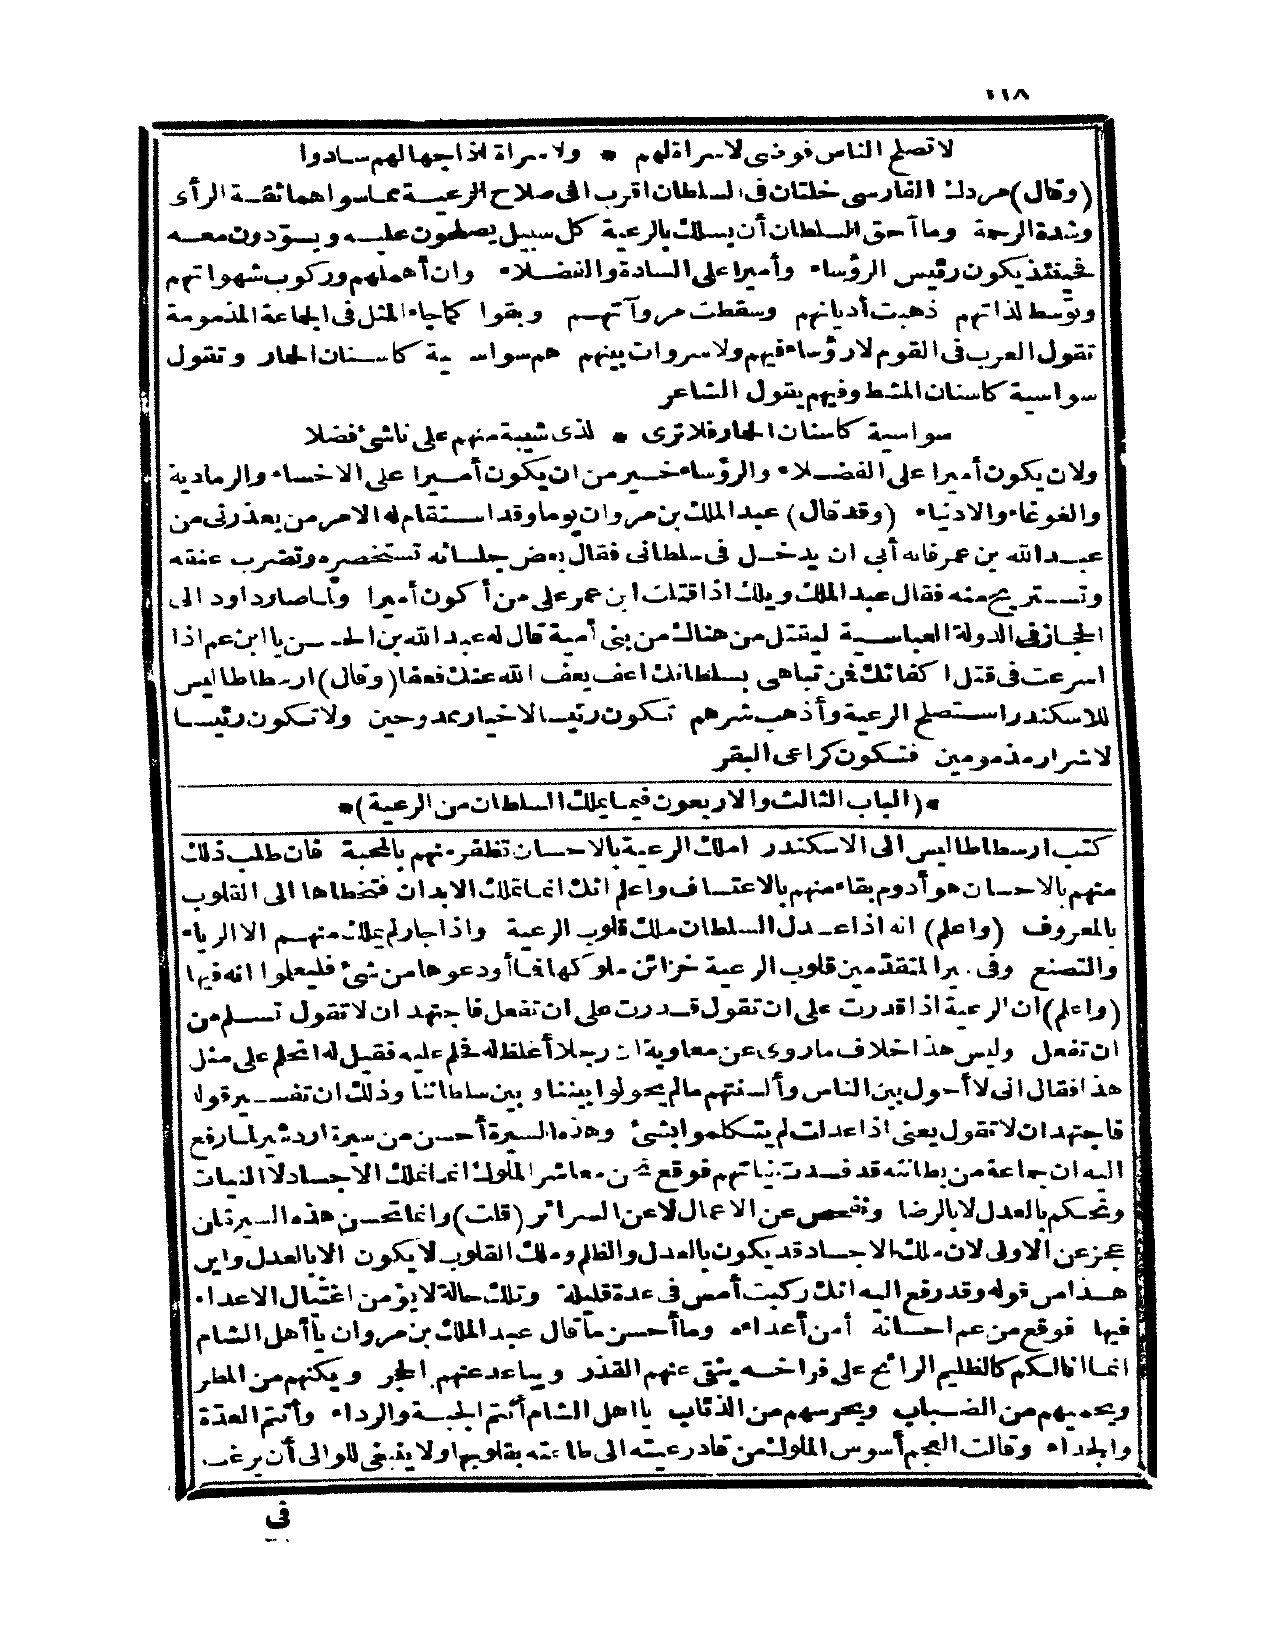 ١١٨
لا تصلح الناس فوضى لا سراة لهم * ولا سراة اذا جهالهم سادوا
(وقال) مردك الفارسى خلتان فى السلطان اقرب الى صلاح الرعية مما سواهما ثقة الرأى
وشدة الرحمة وما أحق السلطان أن يسلك بالرعية كل سبيل يصلحون عليه ويسؤدون معه
فحينئذ يكون رئيس الرؤساء وأميرا على السادة والفضلاء وان أهملهم وركوب شهواتهم
وتوسط لذاتهم ذهبت أديانهم وسقطت مروآتهم وبقوا كما جاء المثل فى الجماعة المذمومة
تقول العرب فى القوم لا رؤساء فيهم ولا سروات بينهم هم سواسية كاسنان الحمار وتقول
سواسية كاسنان المشط وفيهم يقول الشاعر
سواسية كاسنان الحمار فلا ترى * لذى شيبة منهم على ناشئ فضلا
ولان يكون أميرا على الفضلاء والرؤساء خير من ان يكون أميرا على الاخساء والرمادية
والغوغاء والادنياء (وقد قال) عبد الملك بن مروان يوما وقد استقام له الامر من يعذرنى من
عبد الله بن عمر فانه أبى ان يدخل فى سلطانى فقال بعض جلسائه تستحضره وتضرب عنقه
وتستريح منه فقال عبد الملك ويلك اذا قتلت ابن عمر على من أكون أميرا ولما صار داود الى
الحجاز فى الدولة العباسية ليقتل من هنالك من بنى أمية قال له عبد الله بن الحسن يا ابن عم اذا
اسرعت فى قتل اكفائك فمن تباهى بسلطانك اعف يعف الله عنك فعفا (وقال) ارسطاطاليس
للاسكندر استصلح الرعية وأذهب شرهم تكون رئيسا لاخيار ممدوحين ولا تكون رئيسا
لاشرار مذمومين فتكون كراعى البقر
*(الباب الثالث والاربعون فيما يملك السلطان من الرعية)*
كتب ارسطاطاليس الى الاسكندر املك الرعية بالاحسان تظفر منهم بالمحبة فان طلب ذلك
منهم بالاحسان هو أدوم بقاء منهم بالاعتساف واعلم انك انما تملك الابدان فتخطاها الى القلوب
بالمعروف (واعلم) انه اذا عدل السلطان ملك قلوب الرعية واذا جار لم يملك منهم الا الرياء
والتصنع وفى سير المتقدمين قلوب الرعية خزائن ملوكها فما أودعوها من شئ فليعلموا انه فيها
(واعلم) ان الرعية اذا قدرت على ان تقول قدرت على ان تفعل فاجتهد ان لا تقول تسلم من
ان تفعل وليس هذا خلاف ما روى عن معاوية ان رجلا أغلظ له فحلم عليه فقيل له اتحلم على مثل
هذا فقال انى لا أحول بين الناس وألسنتهم ما لم يحولوا بيننا وبين سلطاننا وذلك ان تفسير قوله
فاجتهد ان لا تقول يعنى اذا عدلت لم يتكلموا بشئ وهذه السيرة أحسن من سيرة اردشير لما رفع
اليه ان جماعة من بطانته قد فسدت نياتهم فوقع نحن معاشر الملوك انما نملك الاجساد لا النيات
ونحكم بالعدل لا بالرضا ونفحص عن الاعمال لا عن السرائر (قلت) وانما تحسن هذه السيرة ان
عجز عن الاولى لان ملك الاجساد قد يكون بالعدل والظلم وملك القلوب لا يكون الا بالعدل واين
هذا من قوله وقد رفع اليه انك ركبت أمس فى عدة قليلة وتلك حالة لا يؤمن اغتيال الاعداء
فيها فوقع من عم احسانه أمن أعداءه وما أحسن ما قال عبد الملك بن مروان يا أهل الشام
انما انا لكم كالظليم الرائح على فراخه ينقى عنهم القذر ويباعد عنهم الحجر ويكنهم من المطر
ويحميهم من الضباب ويحرسهم من الذئاب يا اهل الشام أنتم الجبة والرداء وأنتم العدة
والحداء وقالت العجم أسوس الملوك من قاد رعيته الى طاعته بقلوبها ولا ينبغى للوالى أن يرغب
فى